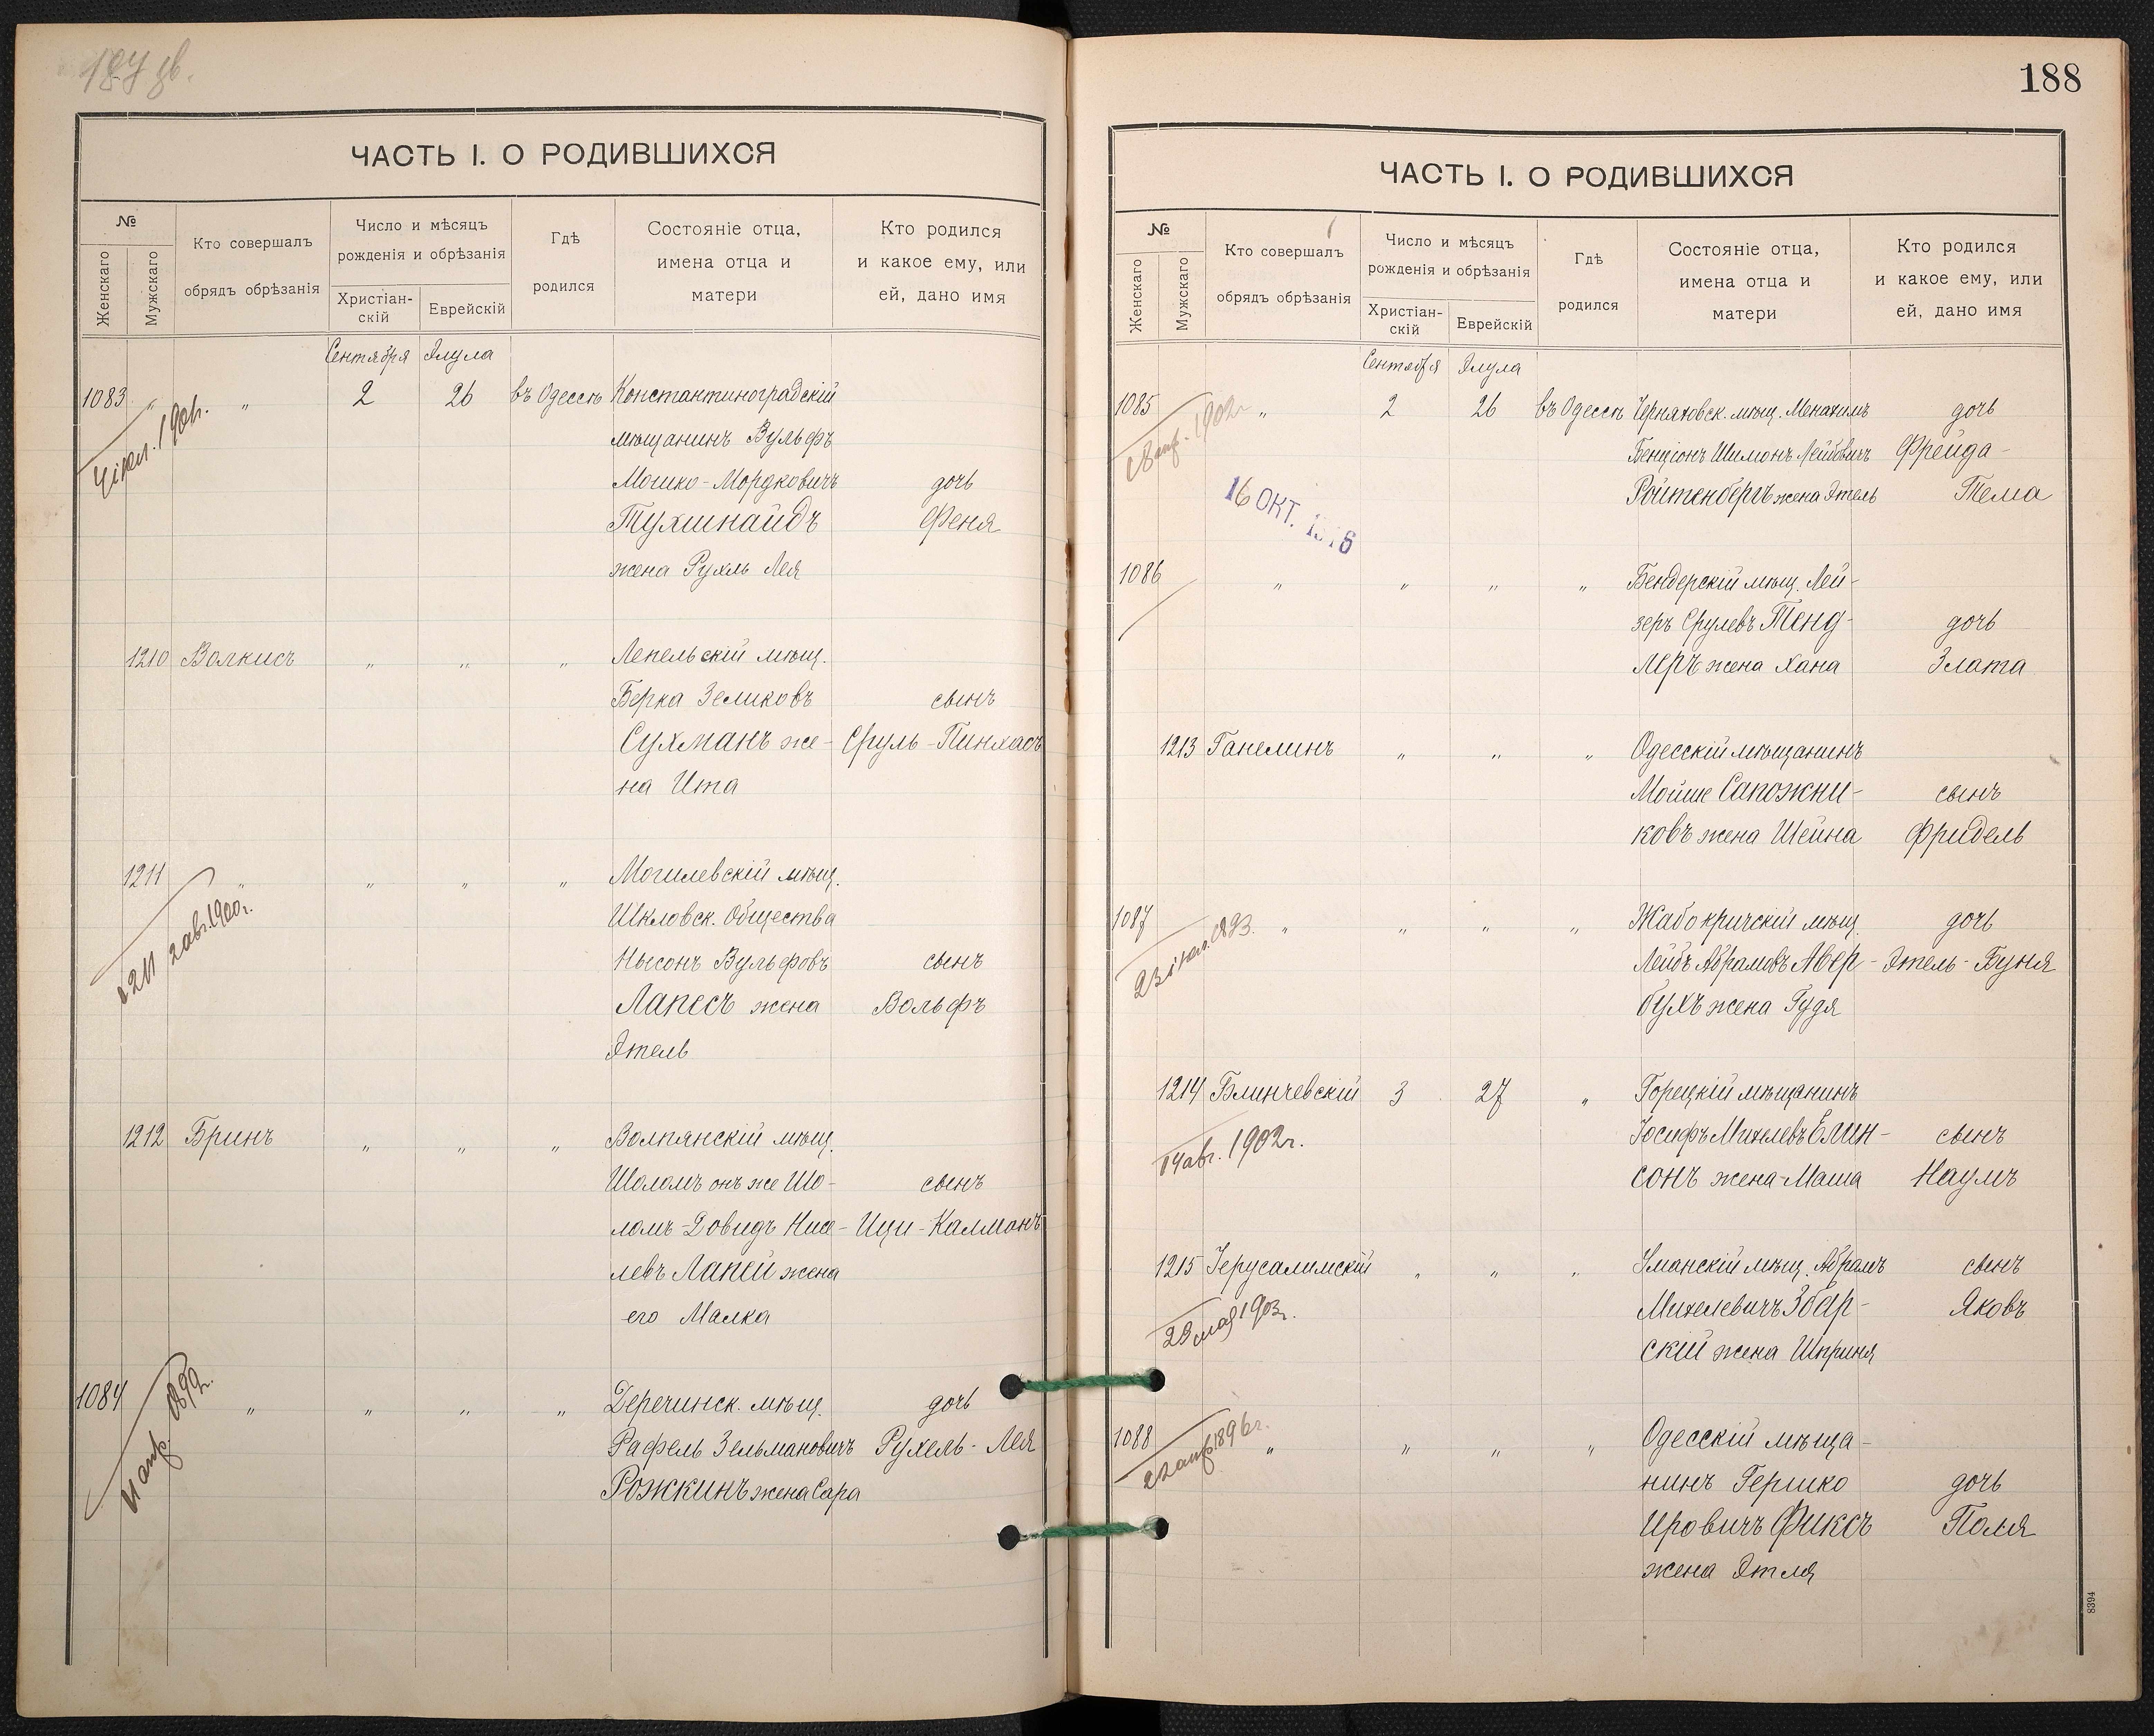 187 об.
ЧАСТЬ I. О РОДИВШИХСЯ
№
Женскаго
Мужскаго
Кто совершалъ
обрядъ обрѣзанія
Число и мѣсяцъ
рожденія и обрѣзанія
Христіан-
скій
Еврейскій
Гдѣ
родился
Состояніе отца,
имена отца и
матери
Кто родился
и какое ему, или
ей, дано имя
Сентября Элула
1083 " " 2 26 въ Одессѣ Константиноградскій
1901г.
мѣщанинъ Вульфъ
Мошко-Мордковичъ дочь
Тухшнайдъ Феня
жена Рухль Лея
1210 Волкисъ " " " Лепельскій мѣщ.
Берка Зеликовъ сынъ
Сухманъ же- Сруль-Пинхасъ
на Ита
1211 " " " " Могилевскій мѣщ.
1211 2 авг. 1900г.
Шкловск. Общества
Нысонъ Вульфовъ сынъ
Лапесъ жена Вольфъ
Этель
1212 Бринъ " " " Волпянскій мѣщ.
Шоломъ онъ же Шо- сынъ
ломъ-Довидъ Нисе- Ици-Калманъ
левъ Лапей жена
его Малка
1084 " " " " Деречинск. мѣщ. дочь
1899г.
Рафель Зельмановичъ Рухель-Лея
Рожкинъ жена Сара
188
ЧАСТЬ I. О РОДИВШИХСЯ
№
Женскаго
Мужскаго
Кто совершалъ
обрядъ обрѣзанія
Число и мѣсяцъ
рожденія и обрѣзанія
Христіан-
скій
Еврейскій
Гдѣ
родился
Состояніе отца,
имена отца и
матери
Кто родился
и какое ему, или
ей, дано имя
Сентября Элула
1085 " 2 26 въ Одессѣ Черняховск. мѣщ. Менахимъ дочь
1902г.
Бенціонъ Шимонъ Лейбовичъ Фрейда-
Ройтенбергъ жена Этель Тема
16 ОКТ.
1086 " " " " Бендерскій мѣщ. Лей-
зеръ Срулевъ Тенд- дочь
леръ жена Хана Злата
1213 Ганелинъ " " " Одесскій мѣщанинъ
Мойше Сапожни- сынъ
ковъ жена Шейна Фридель
1087 " " " " Жабокричскій мѣщ. дочь
Лейбъ Абрамовъ Авер- Этель-Буня
бухъ жена Гудя
1214 Блинчевскій 3 27 " Горецкій мѣщанинъ
14 авг. 1902г.
Іосифъ Михелевъ Елин- сынъ
сонъ жена Маша Наумъ
1215 Іерусалимскій " " " Уманскій мѣщ. Абрамъ сынъ
29 мая 1903г.
Михелевичъ Збар- Яковъ
скій жена Шприня
1088 " " " " Одесскій мѣща-
1896г.
нинъ Гершко дочь
Ировичъ Фиксъ Поля
жена Этля
8394